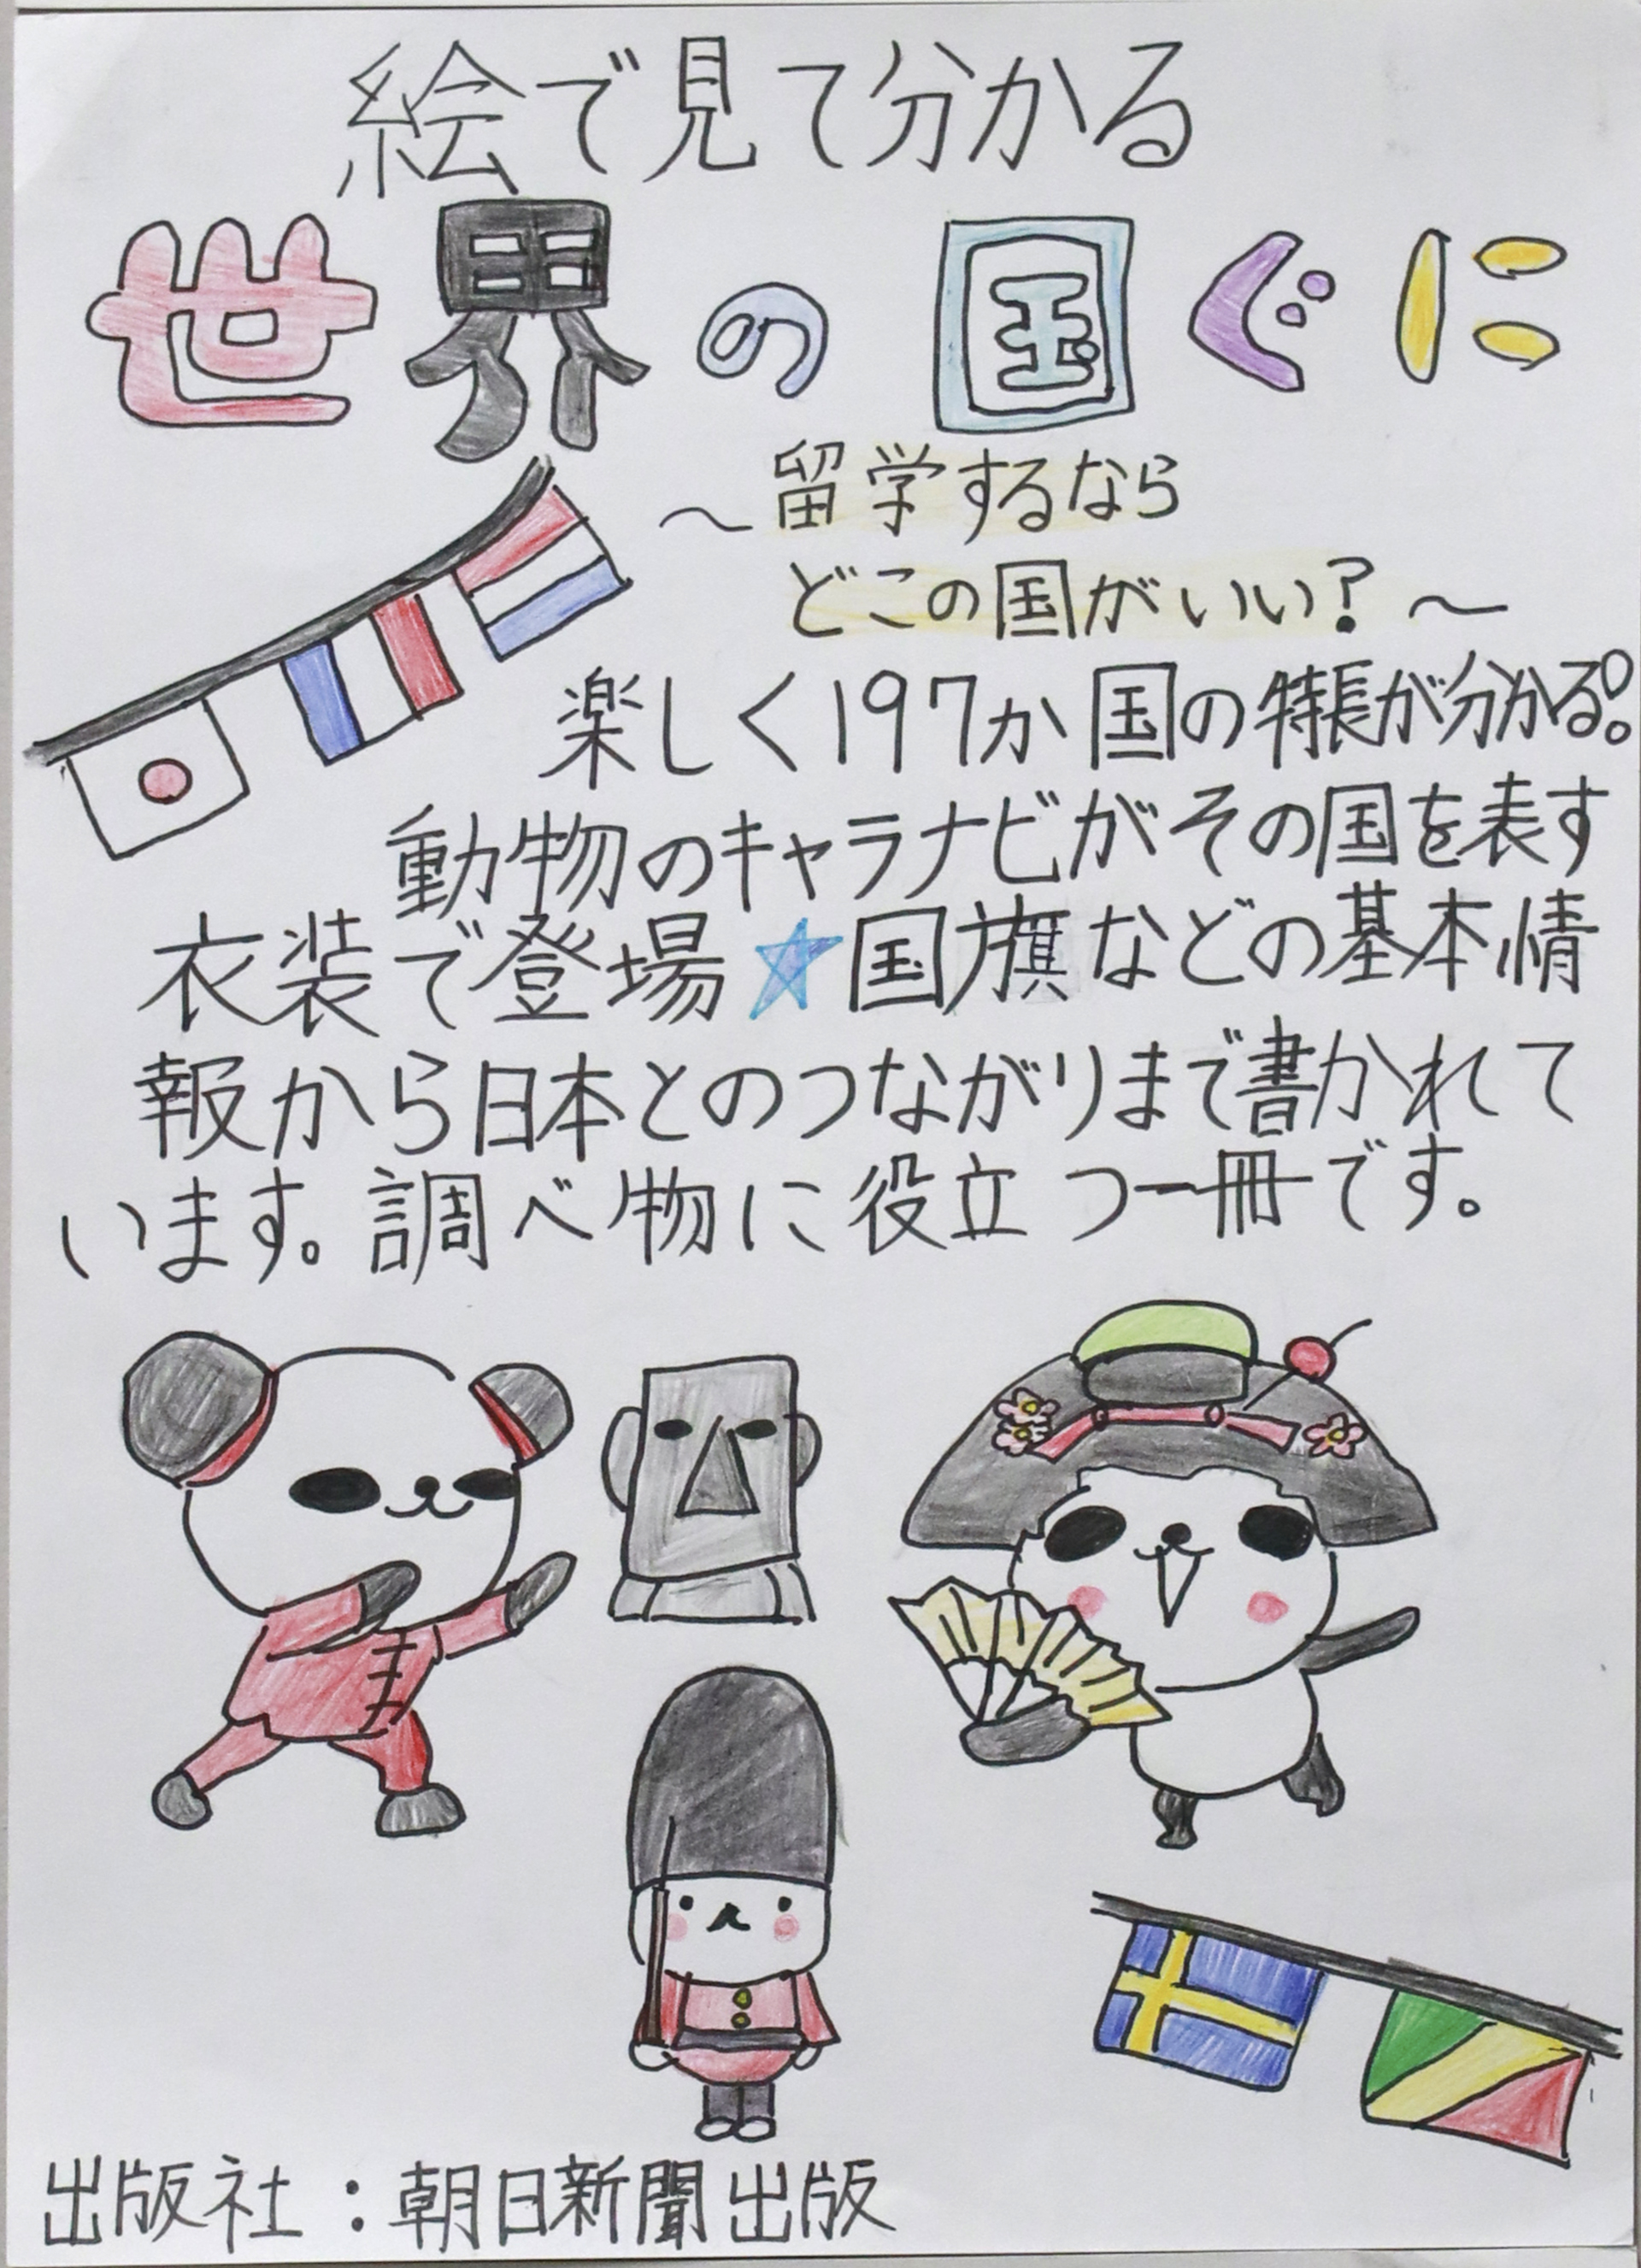 絵で見て分かる
世界の国ぐに
～留学するなら
どこの国がいい？～
楽しく197か国の特長が分かる!。
動物のキャラナビがその国を表す
衣装で登場☆国旗などの基本情
報から日本とのつながりまで書かれて
います。調べ物に役立つ一冊です。
出版社：朝日新聞出版